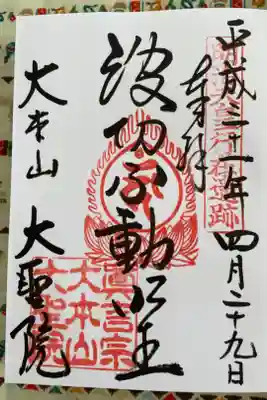 平成三十一年四月二十九日
奉拝
波切不動明王
大本山 大聖院
真言宗
大本山
大聖院